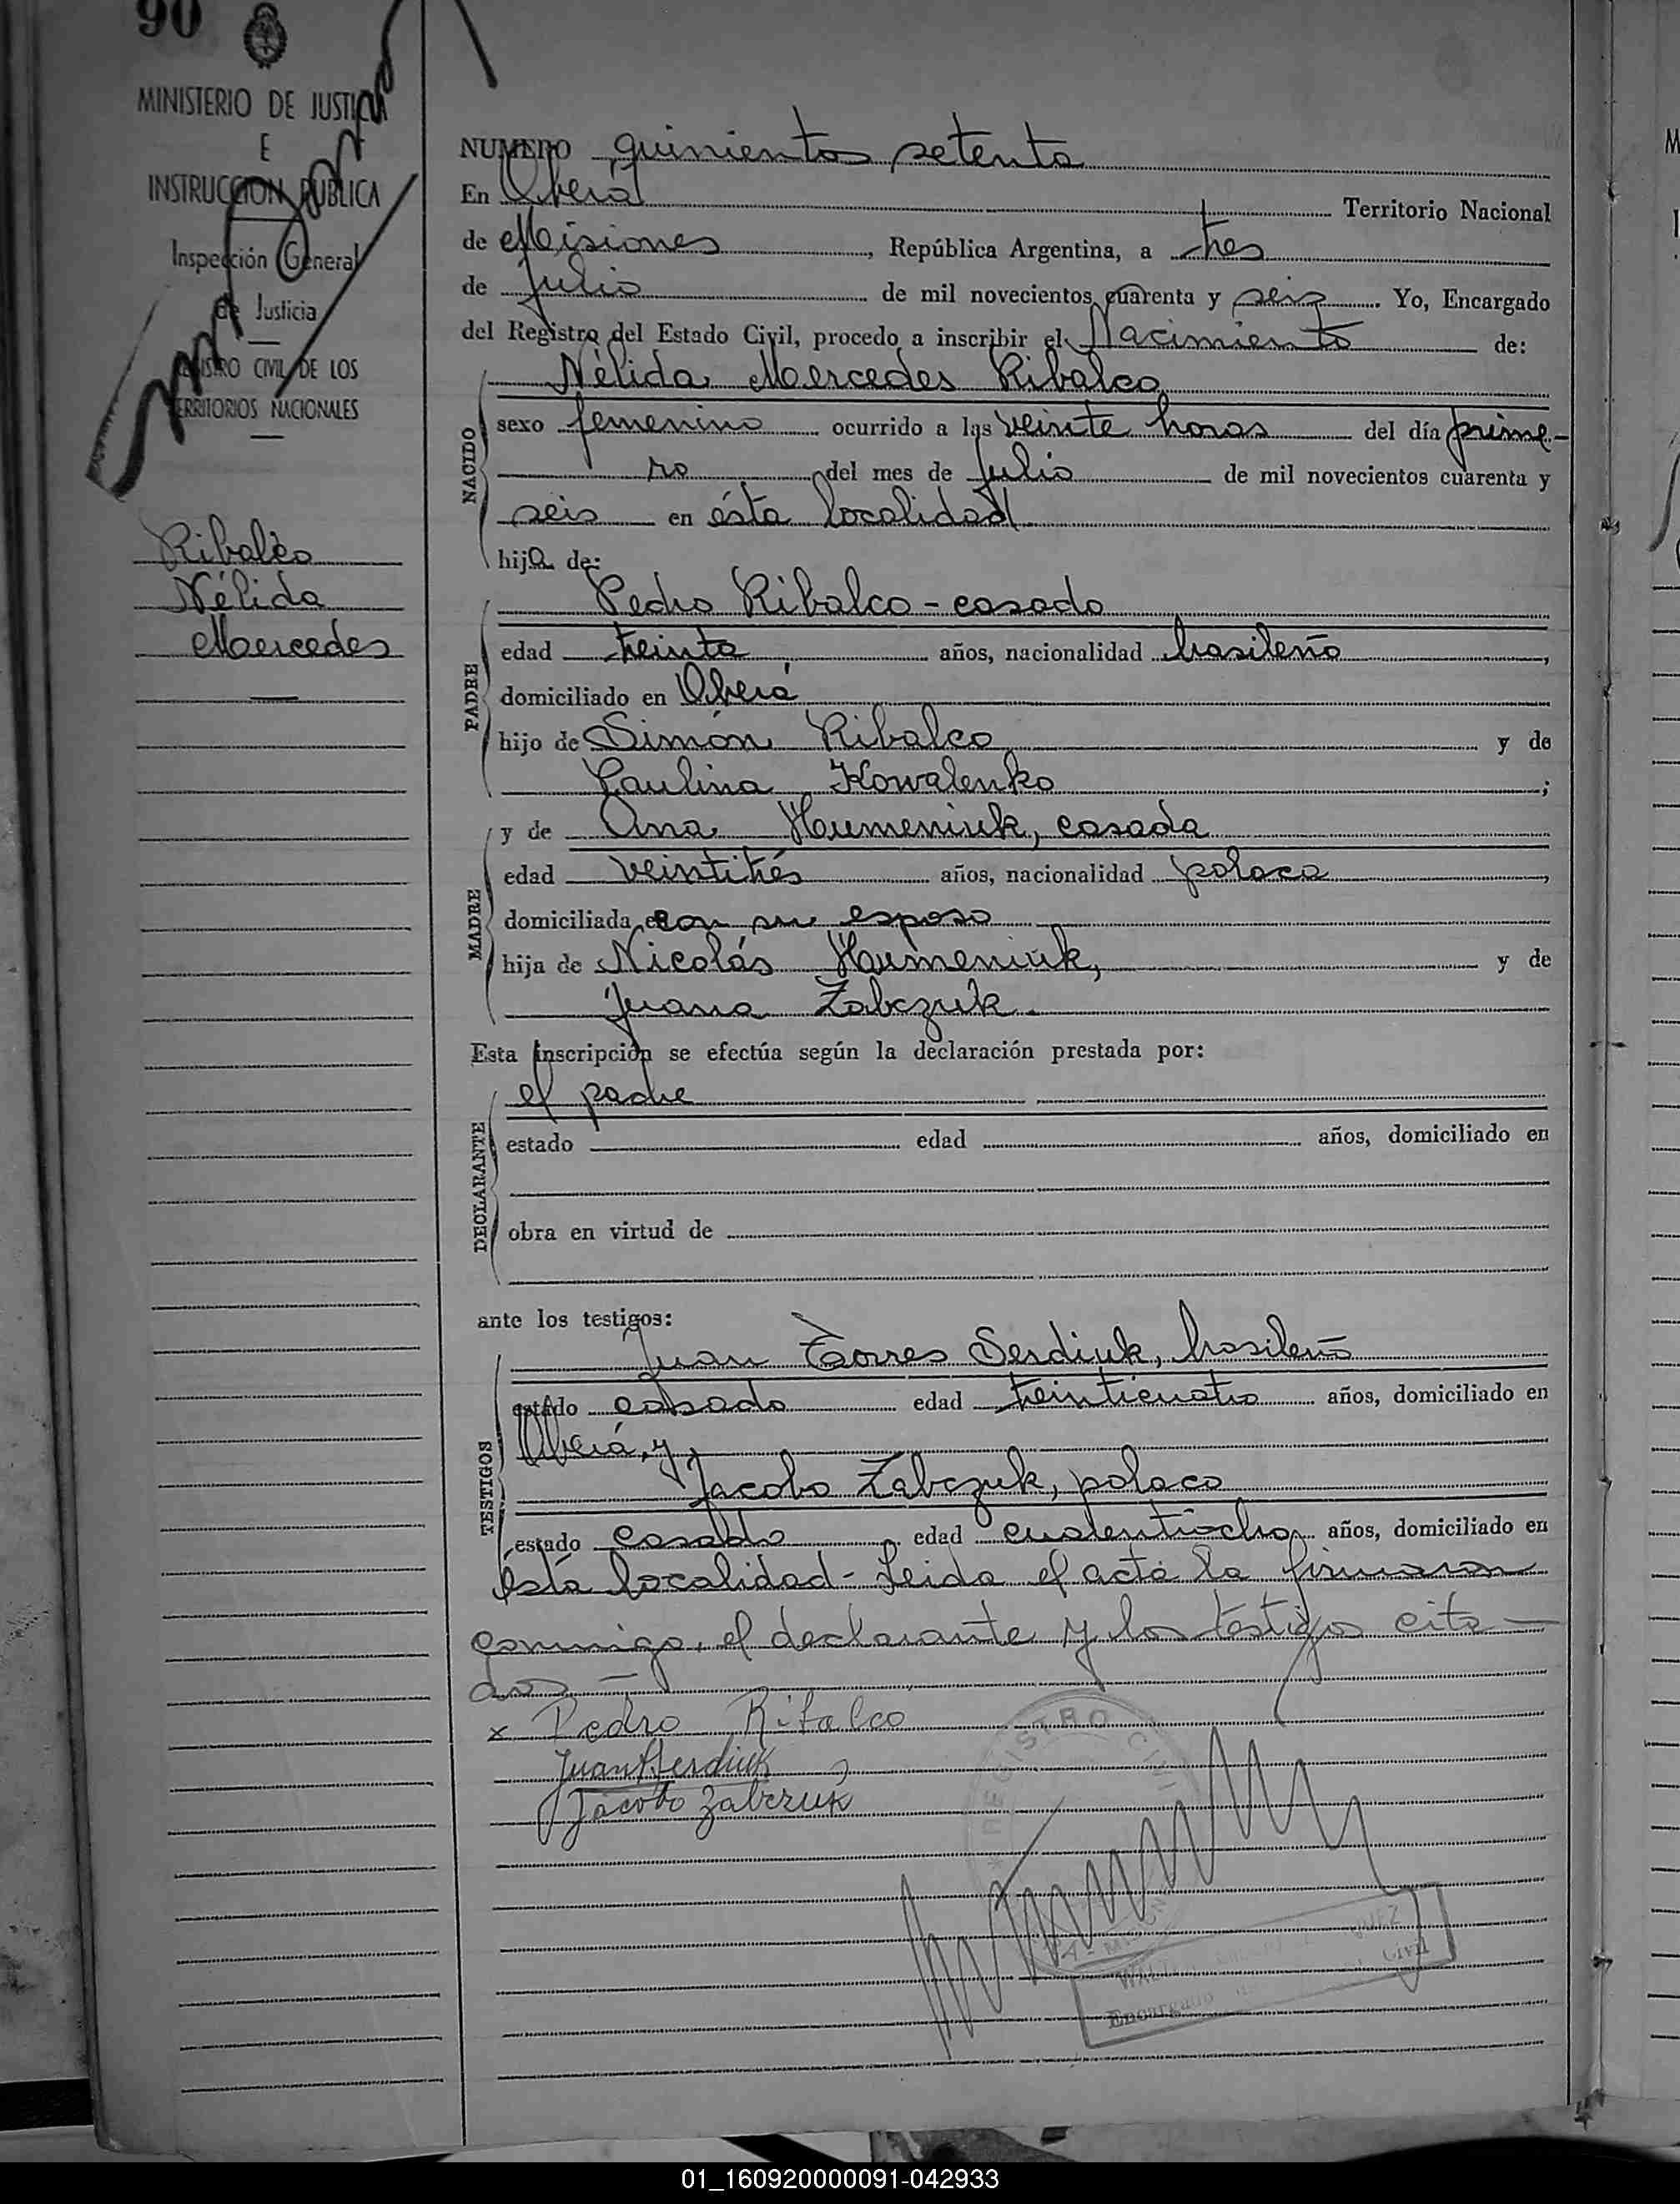 90
MINISTERIO DE JUSTICIA
E
INSTRUCCION PUBLICA
Inspección General
de Justicia
REGISTRO CIVIL DE LOS
TERRITORIOS NACIONALES
Ribalco
Nélida
Mercedes
NUMERO quinientos setenta
En Oberá Territorio Nacional
de Misiones, República Argentina, a tres
de julio de mil novecientos cuarenta y seis. Yo, Encargado
del Registro del Estado Civil, procedo a inscribir el Nacimiento de:
NACIDO
Nélida Mercedes Ribalco
sexo femenino ocurrido a las veinte horas del día prime-
ro del mes de julio de mil novecientos cuarenta y
seis en ésta localidad
hija de:
PADRE
Pedro Ribalco - casado
edad treinta años, nacionalidad brasileño,
domiciliado en Oberá
hijo de Simón Ribalco y de
Paulina Kowalenko;
MADRE
y de Ana Humeniuk, casada
edad veintitrés años, nacionalidad polaca,
domiciliada con su esposo
hija de Nicolás Humeniuk, y de
Juana Zabczuk.
Esta inscripción se efectúa según la declaración prestada por:
DECLARANTE
el padre
estado edad años, domiciliado en
obra en virtud de
ante los testigos:
TESTIGOS
Juan Torres Serdiuk, brasileño
estado casado edad treinticuatro años, domiciliado en
Oberá, y
Jacobo Zabczuk, polaco
estado casado edad cuarentiocho años, domiciliado en
ésta localidad - Leida el acta la firmaron
conmigo, el declarante y los testigos cita-
dos —
x Pedro Ribalco
Juan Serdiuk
Jacobo Zabczuk
REGISTRO CIVIL
Encargado Civil
01_160920000091-042933